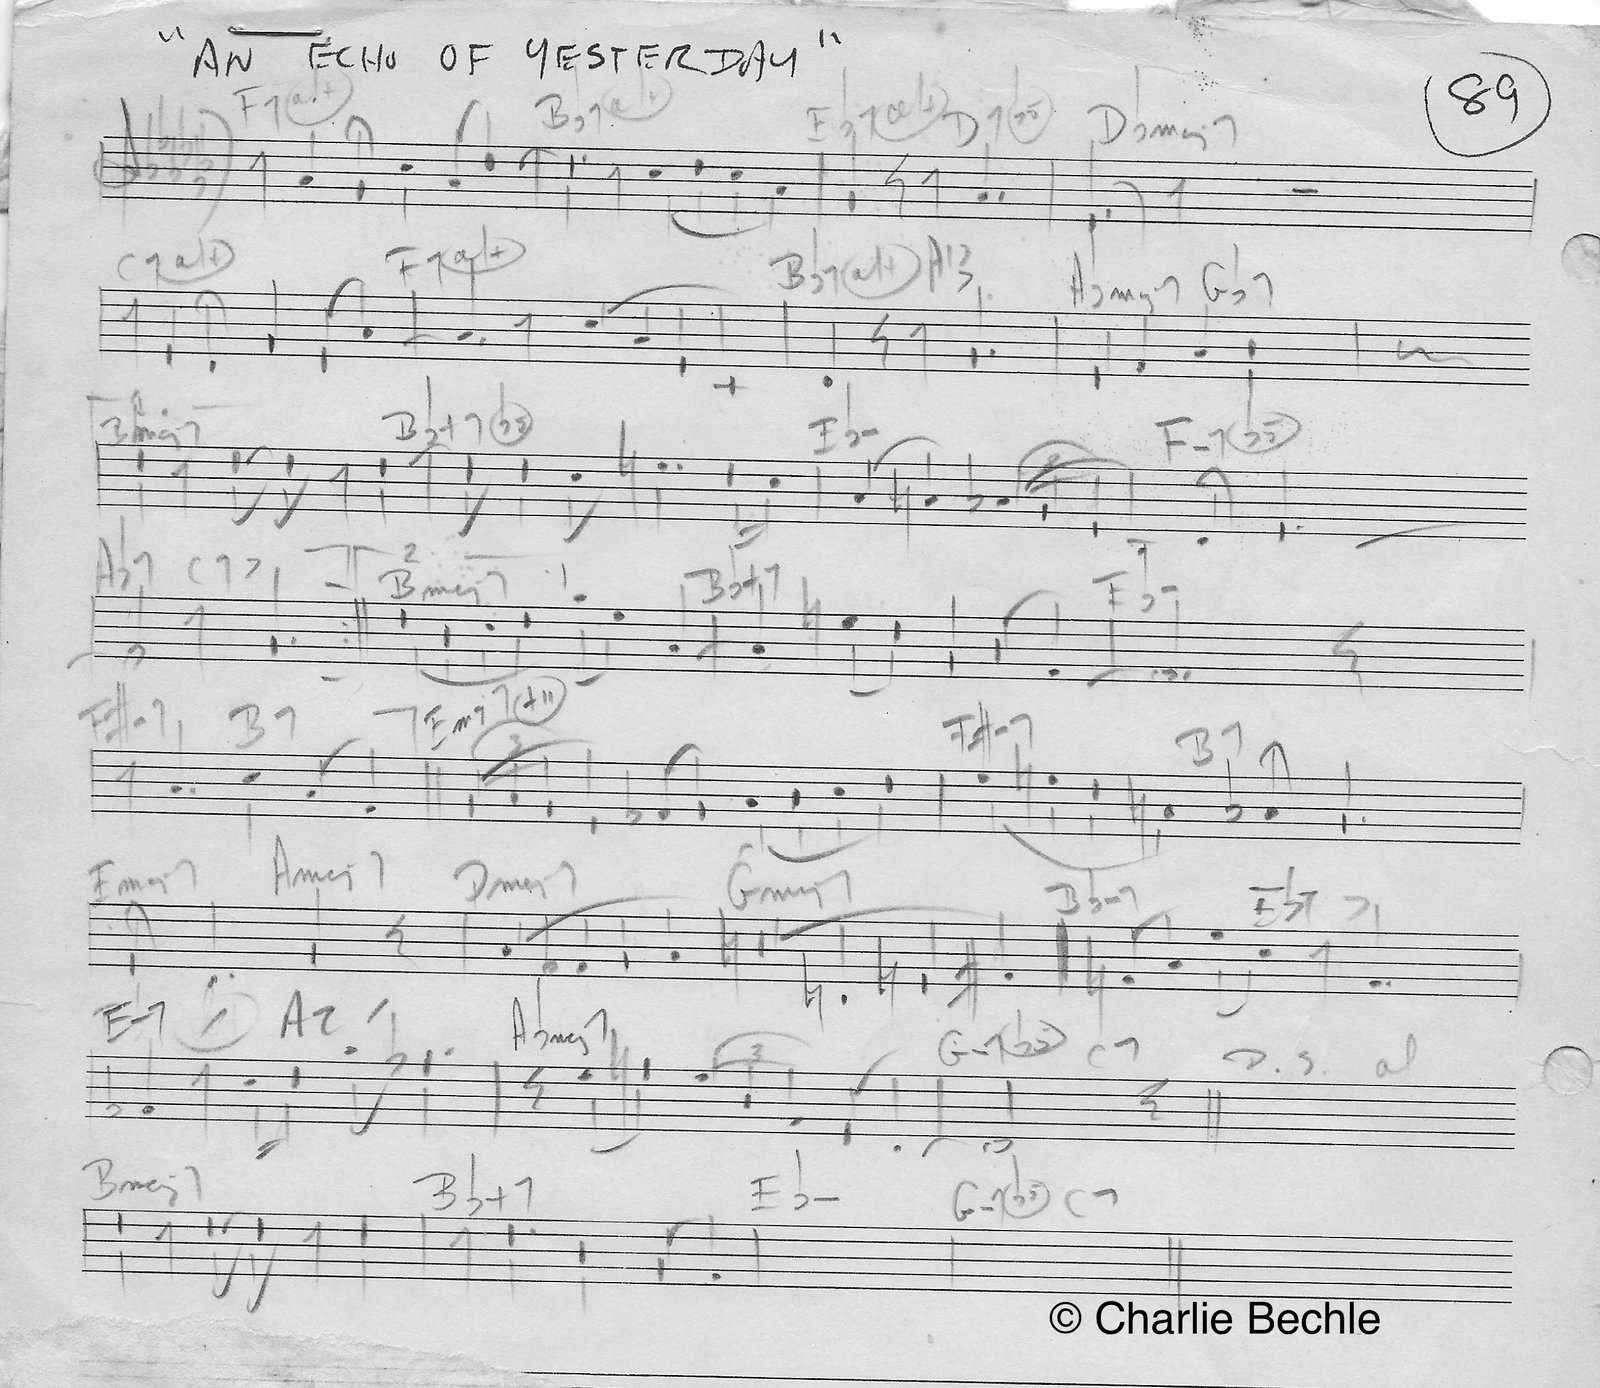 "AN ECHO OF YESTERDAY"
89
F7(alt) B♭7(alt) E♭7(alt) D7(♭5) D♭maj7
C7(alt) F7(alt) B♭7(alt) A13 A♭maj7 G♭7
1.
Bmaj7 B♭+7 E♭- F-7(♭5)
A♭7 C7 2 Bmaj7 B♭+7 E♭-
F#-7 B7 Emaj7(+11) 3 F#-7 B7
Emaj7 Amaj7 Dmaj7 Gmaj7 B♭-7 E♭7
E-7 A7 A♭maj7 3 G-7(♭5) C7 D.S. al
Bmaj7 B♭+7 E♭- G-7(♭5) C7
© Charlie Bechle